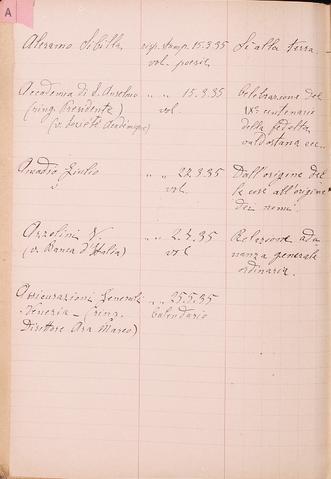 A
Aleramo Sibilla risp. stamp. 15.3.35 Sì alla terra
vol. poesie
Accademia di S. Anselmo " " 15.3.35 Celebrazione del
(ring. Presidente) vol. IX° centenario
(v. Société Académique) della fedeltà
valdostana ecc.
Amadio Giulio " " 22.3.35 Dall'origine del
vol. le cose all'origine
dei nomi.
Azzolini V. " " 2.4.35 Relazione adu
(v. Banca d'Italia) vol nanza generale
ordinaria.
Assicurazioni Generali " " 25.5.35
Venezia - (ring. Calendario
Direttore Ara Marco)